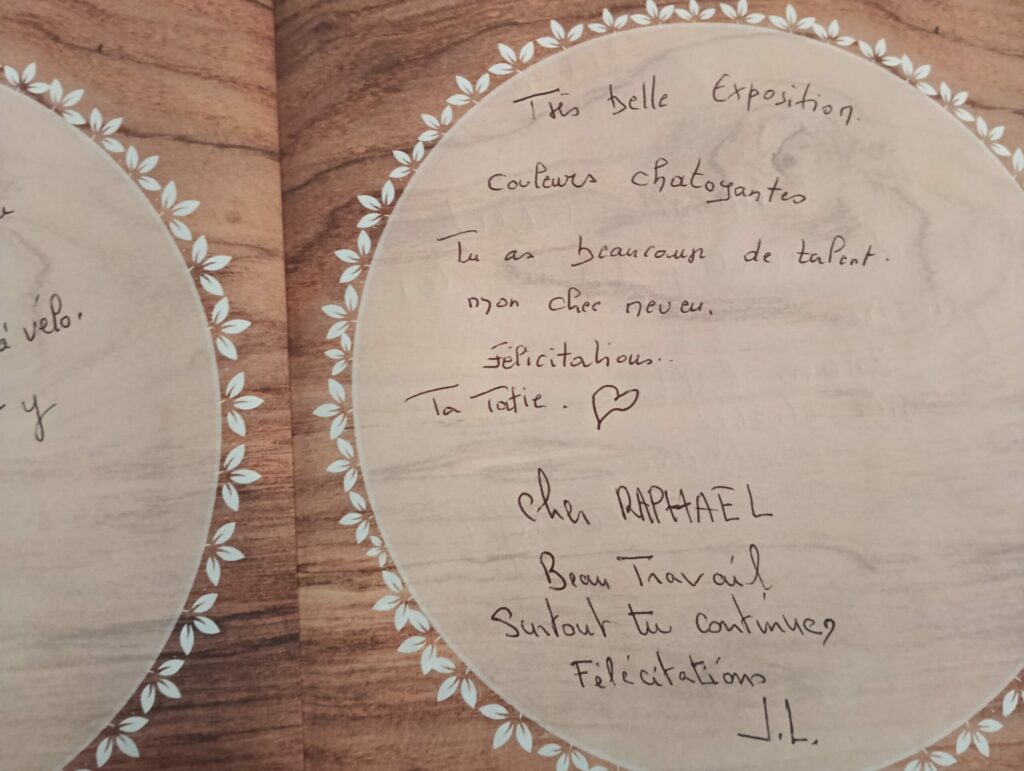 à vélo.
y
Très belle Exposition.
Couleurs chatoyantes
Tu as beaucoup de talent.
mon cher neveu.
Félicitations..
Ta Tatie.
Cher RAPHAEL
Beau Travail
Surtout tu continues
Félécitations
J.L.